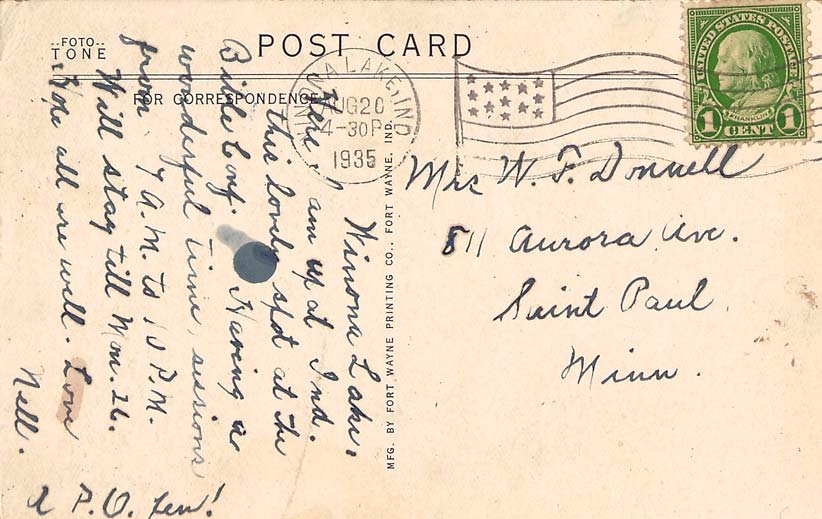 --FOTO--
TONE
POST CARD
FOR CORRESPONDENCE
WINONA LAKE, IND.
AUG 20
4-30P
1935
UNITED STATES POSTAGE
FRANKLIN
1 CENT 1
Winona Lake.
Ind.
Here I am up at
this lovely spot at the
Bible Conf. Having a
wonderful time, sessions
from 7 A.M. to 10 P.M.
Will stay till Mon. 26.
all are well. Love
Nell.
P.O.
MFG. BY FORT WAYNE PRINTING CO., FORT WAYNE, IND.
Mrs W. F. Donnell
811 Aurora Ave.
Saint Paul
Minn.